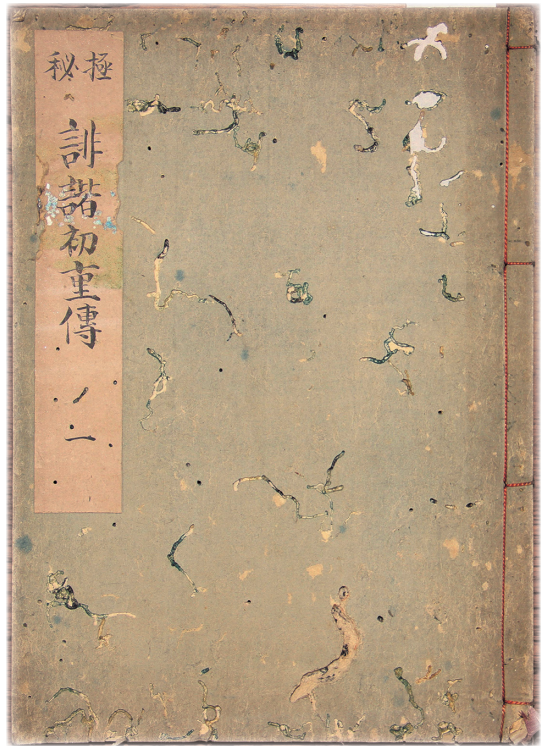 極秘
誹諧初重傳 ノ一